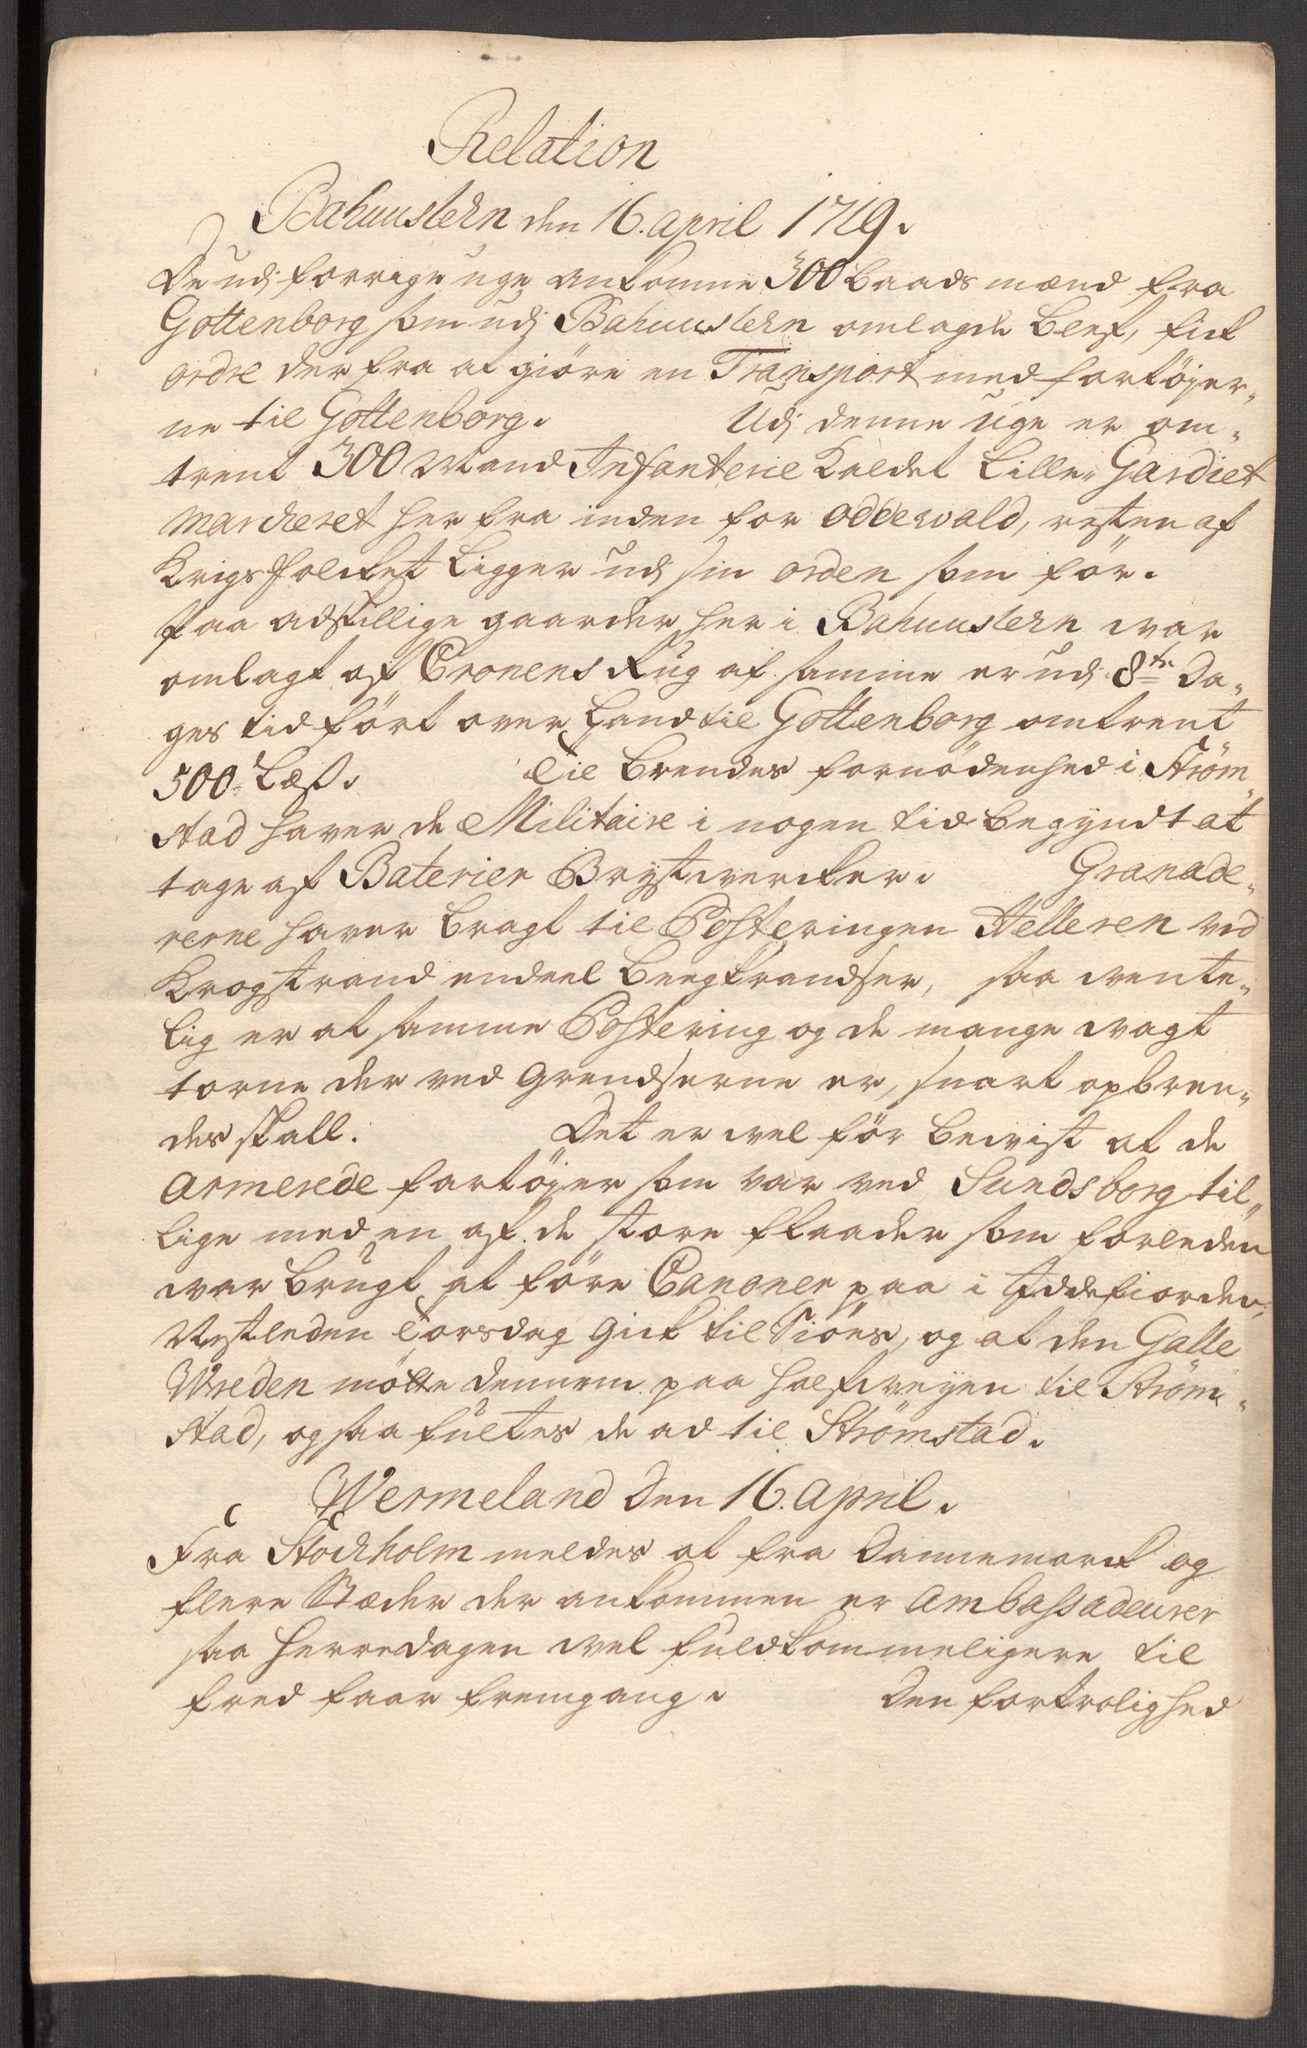 Relation
Bahuuslehn den 16. april 1719.
De udj forrige uge ankomne 300 baadsmænd fra
Gottenborg som udj Bahuuslehn omlagde blef, fick
ordre der fra at giöre en Transport med fartöyer„
ne til Gottenborg. Udj denne uge er om„
trent 300 Mand Infanterie kaldet Lille„ Gardiet
marcheret her fra inden for Oddewald, resten af
Krigsfolcket ligger udj sin orden som för.
Paa adskillige gaarder her i Bahuuslehn war
omlagt af Cronens Rug af samme er udj 8te Da„
ges tid fört over Land til Gottenborg omtrent
500 Læs. Til brendes fornödenhed i Ström„
stad haver de Militaire i nogen tid begyndt at
tage af Baterier Brystwercker. Granade„
rerne haver bragt til Posteringen Helleren ved
Krogstrand endeel beegkrandser, saa wente„
lig er at samme Postering og de mange wagt
torne der ved Grendserne er, snart opbren„
des skall. Det er wel för bewist at de
Armerede fartöyer som var ved Sundsborg til„
lige med en af de store flaader som forleden
war brugt at före Canoner paa i Iddefiorden,
Nestleden Torsdag gick til Siöes, og at den Galle
Wreden mötte dennem paa halfweyen til Ström„
stad, og saa fultes de ad til Strömstad.
Wermeland Den 16. April.
Fra Stockholm meldes at fra Dannemarck og
flere Stæder der ankommen er Ambassadeurer
saa Herredagen wel fuldkommeligere til
fred faar fremgang. Den fortrolighed